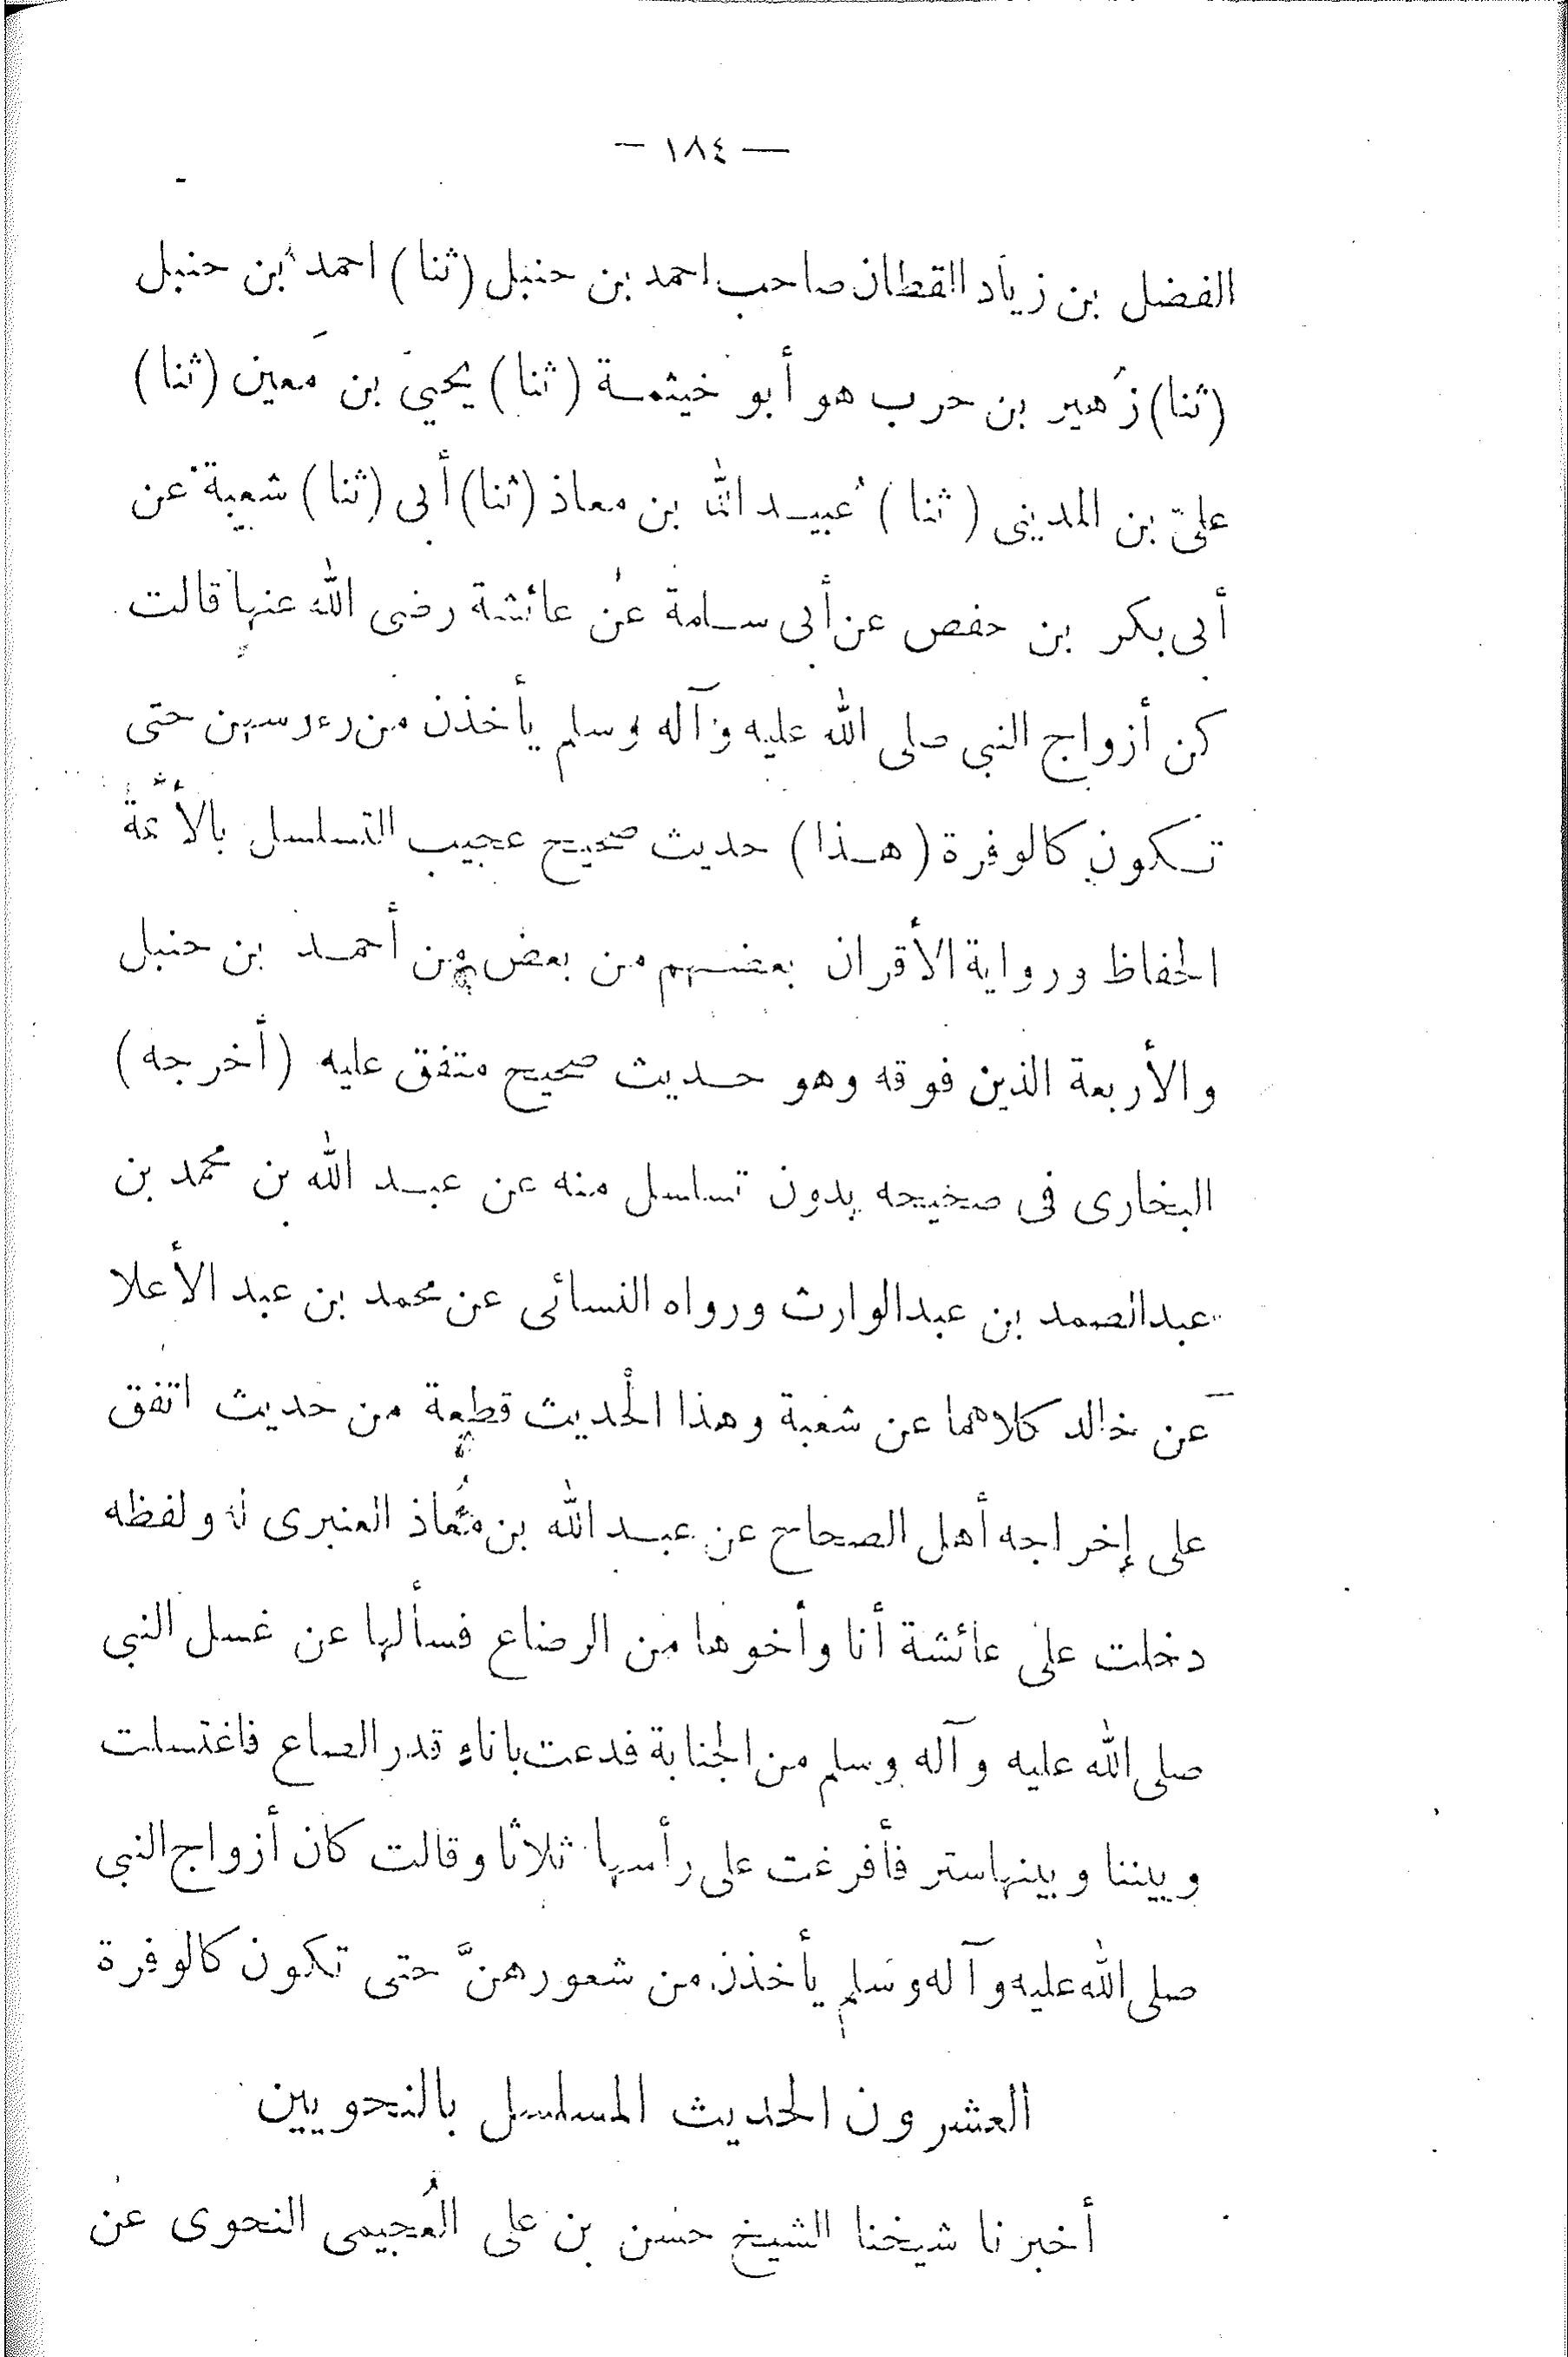 — ١٨٤ —
الفضل بن زياد القطان صاحب احمد بن حنبل (ثنا) احمد بن حنبل
(ثنا) زُهير بن حرب هو أبو خيثمـة (ثنا) يحيى بن مَعين (ثنا)
علىّ بن المدينى (ثنا) عُبيـد الله بن معاذ (ثنا) أبى (ثنا) شعبة عن
أبى بكر بن حفص عن أبى سـامة عن عائشة رضى الله عنها قالت
كن أزواج النبي صلى الله عليه وآله وسلم يأخذن من رءوسهن حتى
تـكون كالوفرة (هـذا) حديث صحيح عجيب التسلسل بالأئمة
الحفاظ ورواية الأقران بعضـهم من بعض من أحمـد بن حنبل
والأربعة الذين فوقه وهو حـديث صحيح متفق عليه (أخرجه)
البخارى فى صحيحه بدون تسلسل منه عن عبـد الله بن محمد بن
عبدالصمد بن عبدالوارث ورواه النسائى عن محمد بن عبد الأعلا
عن خالد كلاهما عن شعبة وهذا الحديث قطعة من حديث اتفق
على إخراجه أهل الصحاح عن عبـد الله بن مُعاذ العنبرى نا ولفظه
دخلت على عائشة أنا وأخوها من الرضاع فسألها عن غسل النبى
صلى الله عليه وآله وسلم من الجنابة فدعت باناء قدر الصاع فاغتسلت
وبيننا وبينها ستر فأفرغت على رأسها ثلاثا وقالت كان أزواج النبى
صلى الله عليه وآله وسلم يأخذن من شعورهنَّ حتى تكون كالوفرة
العشرون الحديث المسلسل بالنحويين
أخبرنا شيخنا الشيخ حسن بن على العُجيمى النحوى عن